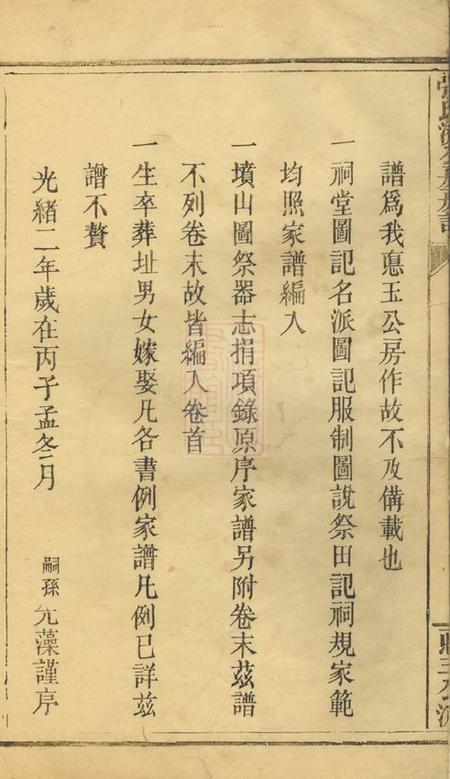 譜爲我悳玉公房作故不及備載也
一祠堂圖記名派圖記服制圖說祭田記祠規家範
均照家譜編入
一墳山圖祭器志捐項錄原序家譜另附卷末茲譜
不列卷末故皆編入卷首
一生卒葬址男女嫁娶凡各書例家譜凡例已詳茲
譜不贅
光緒二年歲在丙子孟冬月
嗣孫元藻謹序